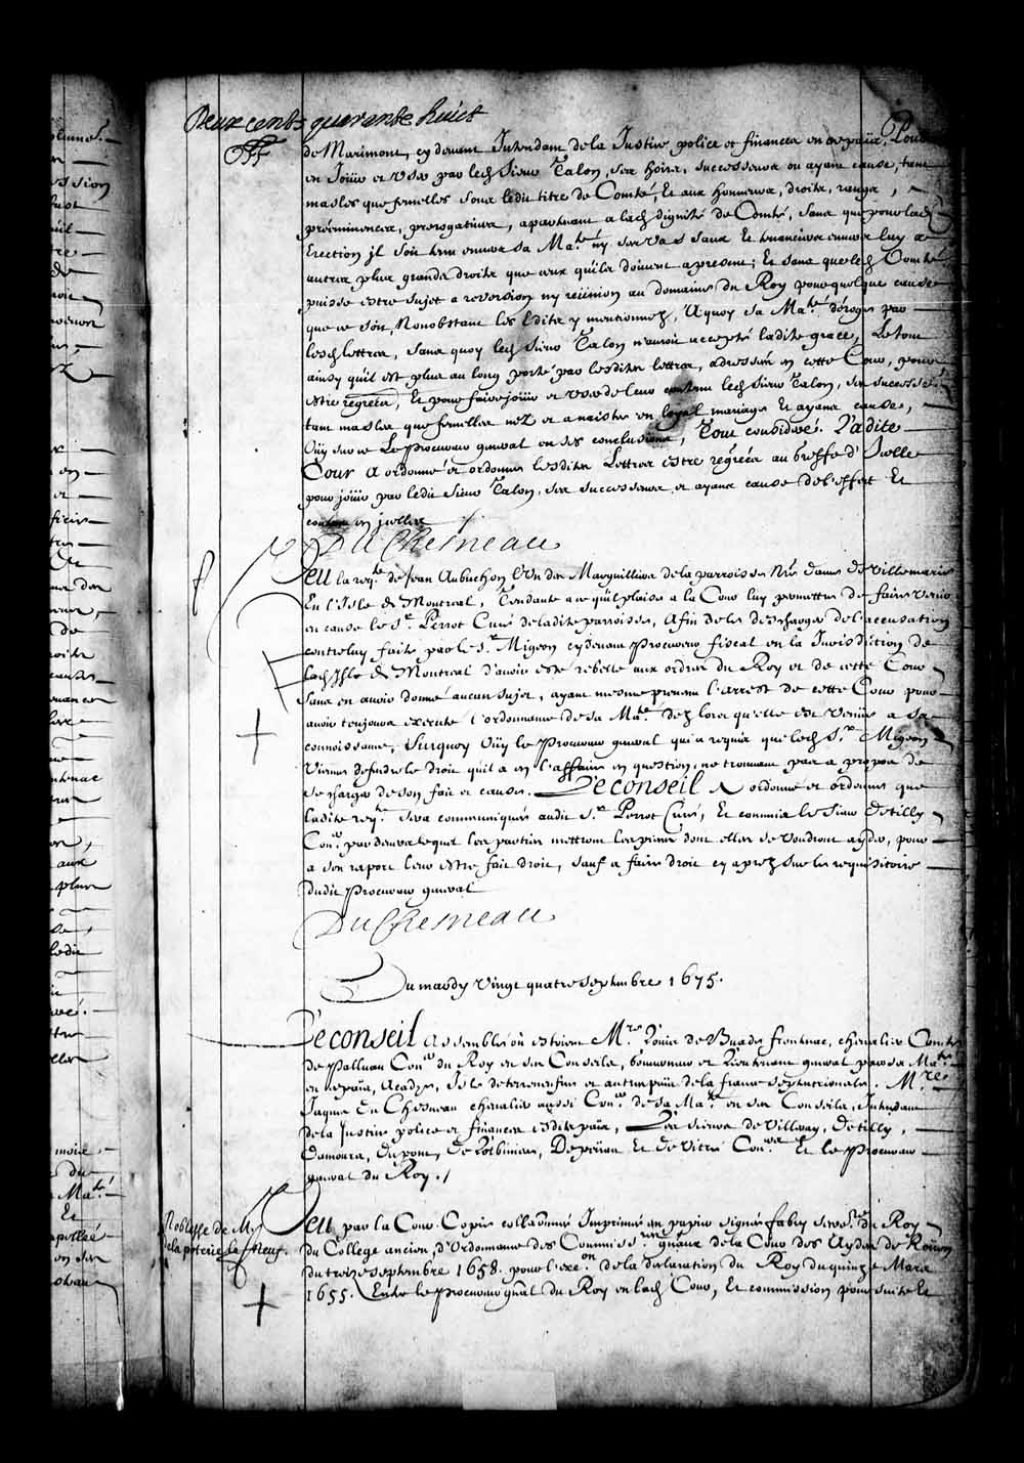 Deux cents quarente huict
de Marimont, cy devant Intendant de la Justice police et finances en ce païs, Pour
en Joüir et User par led. Sieur Talon, ses hoirs, successeurs ou ayans cause, tant
masles que femelles soux ledit titre de Comté, Et aux honneurs, droits, rangs,
préeminences, prerogatives, apartenant a lad. dignité de Comté, sans que pour lad.
Erection jl soit tenu envers sa Maté. ny ses vassaux Et tenanciers envers luy a
autres plus grands droits que ceux qu'ils doivent a present; Et sans que led. Comté
puisse estre sujet a reversion ny reünion au domaine du Roy pour quelque cause
que ce soit, Nonobstant les Edits y mentionnez, A quoy sa Maté. déroge par
lesd. lettres, sans quoy led. Sieur Talon n'auroit accepté ladite grace, Le tout
ainsy qu'il est plus au long porté par lesdites lettres, adressées en cette Cour, pour
estre regrées, Et pour faire joüir et user de leur contenu led. Sieur Talon, ses successeurs
tant masles que femelles nez et a naistre en loyal mariage Et ayans cause,
Oüy sur ce Le Procureur general en ses conclusions, Tout consideré. Ladite
Cour a ordonné et ordonne lesdites Lettres estre regrées au greffe d'Icelle
pour joüir par ledit Sieur Talon, ses successeurs et ayans cause de l'effect Et
contenu en jcelles
DuChesneau
Veu la reqte. de Jean Aubuchon L'Un des Marguilliers de la parroisse Nre. dame de Villemarie
En l'Isle de Montreal, Tendante a ce qu'il plaise a la Cour luy permettre de faire venir
en cause le Sr. Perrot Curé de ladite parroisse, Afin de le descharger de l'accusation
contre luy faite par le Sr. Migeon cydevant Procureur fiscal en la Jurisdiction de
lad. Isle de Montreal d'avoir esté rebelle aux ordres du Roy et de cette Cour
sans en avoir donné aucun sujet, ayant mesme prevenu l'arrest de cette Cour pour
avoir toujours executé l'ordonnance de sa Maté. dez lors qu'elle est venüe a sa
connoissance, Surquoy Oüy le Procureur general qui a requis que led. Sr. Migeon
Vienne defendre le droit qu'il a en l'affaire en question, ne trouvant pas a propos de
se charger de son fait et cause. Le conseil A ordonné et ordonne que
ladite reqte. sera communiquée audit Sr. Perrot Curé, Et commis le Sieur de Tilly
Conr. pardevant lequel les parties mettront les pieces dont elles se voudront ayder, pour
a son raport leur estre fait droit, sauf a faire droit cy aprez sur le requisitoire
dudit Procureur general
DuChesneau
Du mardy Vingt quatre septembre 1675.
Le conseil Assemblé où estoient Mre. Loüis de Buade frontenac, chevalier Comte
de Palluau Conr. du Roy en ses Conseils, Gouverneur et Lieutenant general pour sa Maté
en ce païs, Acadye, Isle de terreneufve et autres païs de la france septentrionale. Mre.
Jaques Du Chesneau chevalier aussi Conr. de sa Maté. en ses Conseils, Intendant
de la Justice police et finances esdits païs, Les sieurs de Villeray, de Tilly,
Damours, Dupont, de Lotbiniere, Depeiras Et de Vitré Conrs. Et le Procureur
general du Roy. /
Noblesse de Mr.
de la poterie le Neuf.
Veu par la Cour Copie collationnée Imprimée en papier signée fabry Secre. du Roy
du College ancien, d'Ordonnance des Commissres. gnaux de la Cour des Aydes de Roüen
du treize septembre 1658. pour l'exeon. de la declaration du Roy du quinze Mars
1655. Entre le Procureur gnal du Roy en lad. Cour, Et commission poursuite Et